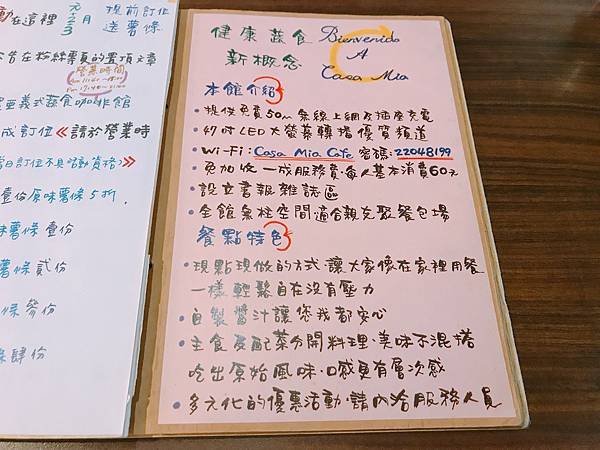 動在這裡 元 2 3 月 提前訂位
送薯條
公告在粉絲專頁的置頂文章
營業時間
義式蔬食咖啡館
成訂位《請於營業時
當日訂位不具活動資格》
壹份原味薯條5折.
味薯條壹份
薯條貳份
條參份
條肆份
健康蔬食 Bienvenido
新概念 A
Casa Mia
本館介紹
•提供免費50m無線上網及插座充電
•47吋LED大螢幕轉播優質頻道
•Wi-Fi: Casa Mia Cafe 密碼: 22048199
•免加收一成服務費·每人基本消費60元
•設立書報雜誌區
•全館無柱空間適合親友聚餐包場
餐點特色
•現點現做的方式讓大家像在家裡用餐
一樣輕鬆自在沒有壓力
•自製醬汁讓您我都安心
•主食及配菜分開料理·美味不混搭
吃出原始風味·口感更有層次感
•多元化的優惠活動·請內洽服務人員